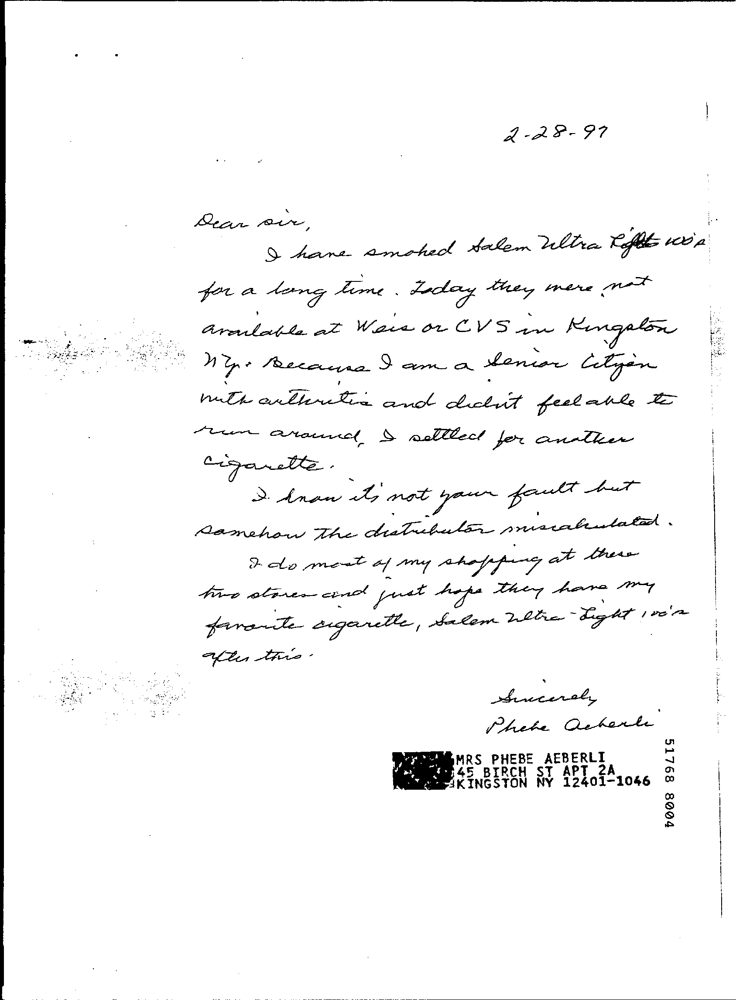 2-28-97
Dear sir,
I have smoked Salem Ultra Lights 100's
for a long time. Today they were not
available at Weis or CVS in Kingston
N.Y. Because I am a Senior Cityen
with arthritis and didn't feel able to
run around, I settled for another
cigarette.
I know it's not your fault but
somehow the distributor miscalculated.
I do most of my shopping at these
two stores and just hope they have my
favorite cigarette, Salem Ultra-Light 100's
after this.
Sincerely
Phebe Aeberli
MRS PHEBE AEBERLI
45 BIRCH ST APT 2A
KINGSTON NY 12401-1046
51768 8004